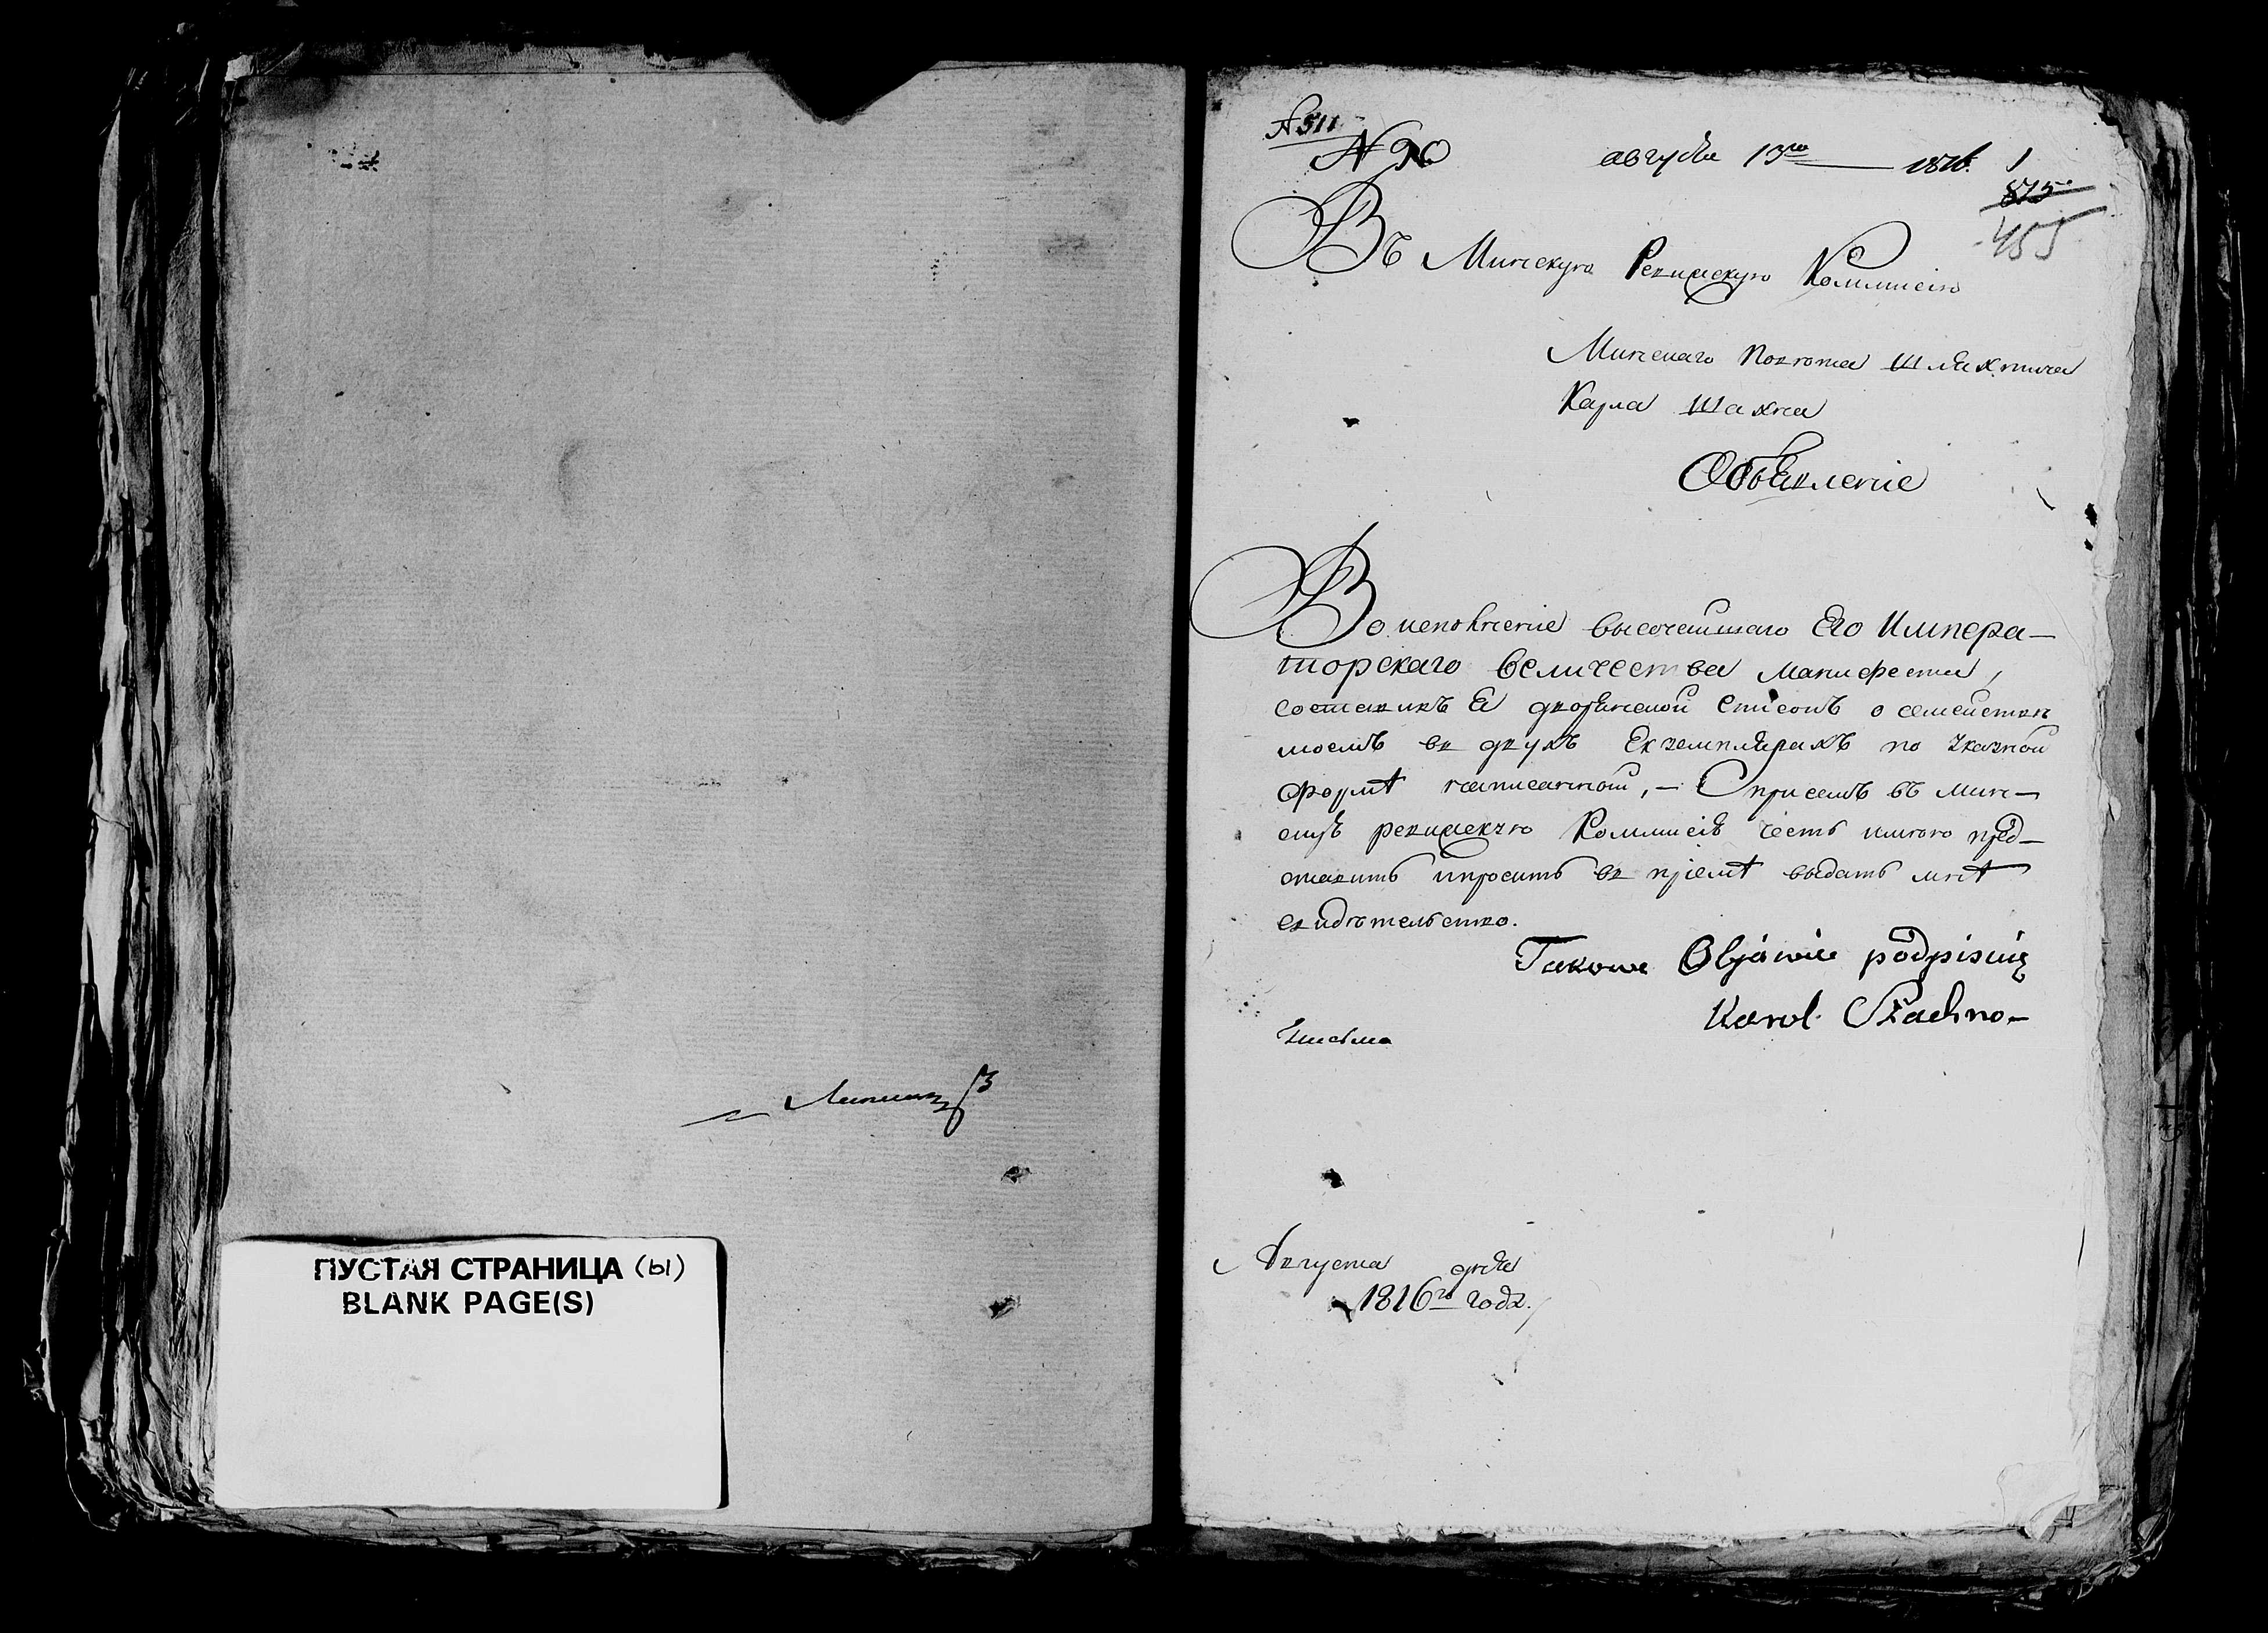 ПУСТАЯ СТРАНИЦА (Ы)
BLANK PAGE(S)
№ 511
№ 90 августа 13го 1816. 1
875
455
Въ Минскую Ревижскую Коммисію
Минскаго повѣта шляхтича
Карла Шахна
Объявленіе
Во исполненіе высочешшаго Его Импера-
торскаго величества манифеста,
составивъ я дворянской списокъ о семействѣ
моемъ въ двухъ Екземплярахъ по указной
формѣ написанной, - С присемъ въ Мин-
скую ревижскую Коммисію честь имѣю пред-
ставить и просить въ пріемѣ выдать мнѣ
свидѣтельство.
Takowe Objawie podpisuię
Karol Szachno-
Августа дня
1816го года.